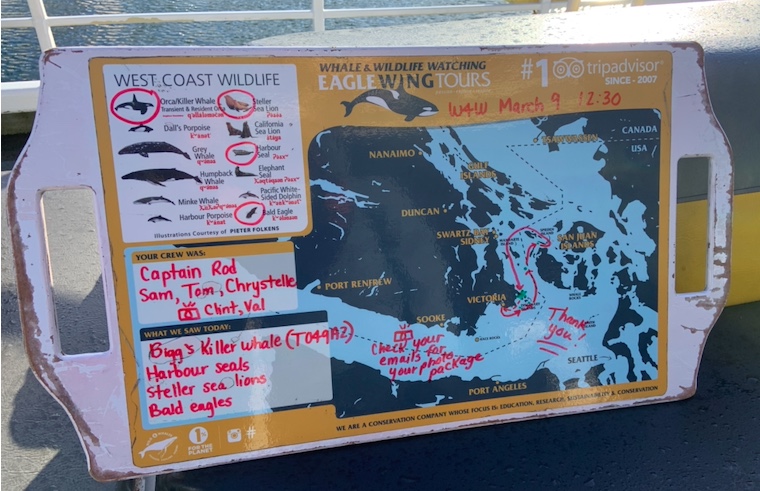 WHALE & WILDLIFE WATCHING
EAGLE WING TOURS
#1 tripadvisor®
SINCE - 2007
W4W March 9 12:30
WEST COAST WILDLIFE
Orca/Killer Whale
Transient & Resident Orca
Steller
Sea Lion
Dall's Porpoise
California
Sea Lion
Grey
Whale
Harbour
Seal
Humpback
Whale
Elephant
Seal
Minke Whale
Pacific White-
Sided Dolphin
Harbour Porpoise
Bald Eagle
Illustrations Courtesy of PIETER FOLKENS
YOUR CREW WAS:
Captain Rod
Sam, Tom, Chrystelle
Clint, Val
WHAT WE SAW TODAY:
Bigg's Killer whale (T049A2)
Harbour seals
Steller sea lions
Bald eagles
CANADA
USA
TSAWWASSEN
NANAIMO
GULF
ISLANDS
DUNCAN
SWARTZ BAY
SIDNEY
SAN JUAN
ISLANDS
PORT RENFREW
VICTORIA
SOOKE
RACE ROCKS
SEATTLE
PORT ANGELES
Thank
you!
Check your
emails for
your photo
package
WE ARE A CONSERVATION COMPANY WHOSE FOCUS IS: EDUCATION, RESEARCH, SUSTAINABILITY & CONSERVATION
1%
FOR THE
PLANET
#